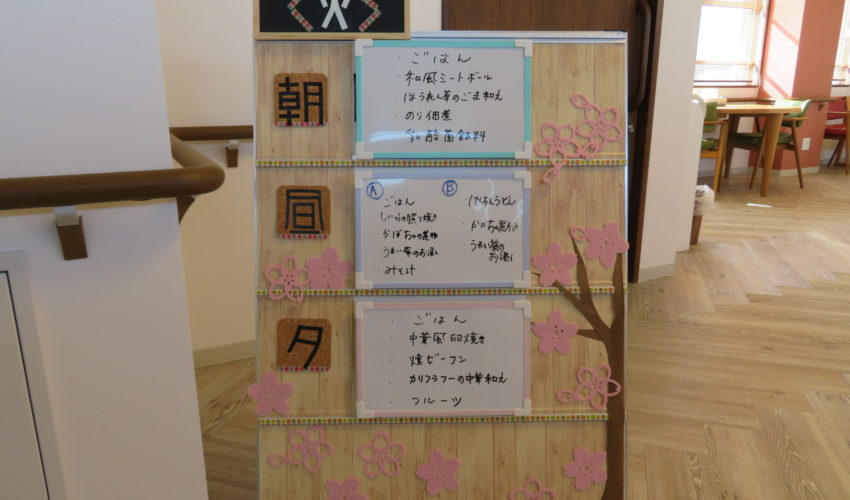 朝
・ごはん
・和風ミートボール
・ほうれん草のごま和え
・のり佃煮
・乳酸菌飲料
昼
A
・ごはん
・しいらの照り焼き
・かぼちゃの煮物
・うまい菜のお浸し
・みそ汁
B
・けんちんうどん
・かぼちゃの煮付き
・うまい菜の
お浸し
夕
・ごはん
・中華風卵焼き
・焼ビーフン
・カリフラワーの中華和え
・フルーツ